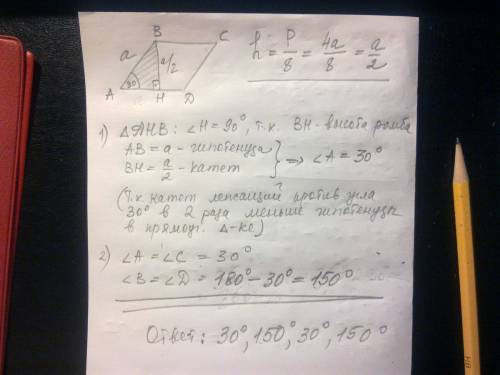 B C
a a/2 h = P/8 = 4a/8 = a/2
30°
A H D
1) △AHB: ∠H = 90°, т.к. BH - высота ромба
AB = a - гипотенуза
BH = a/2 - катет } ⇒ ∠A = 30°
(т.к катет лежащий против угла
30° в 2 раза меньше гипотенузы
в прямоуг. △-ке)
2) ∠A = ∠C = 30°
∠B = ∠D = 180° - 30° = 150°
Ответ: 30°, 150°, 30°, 150°
HB